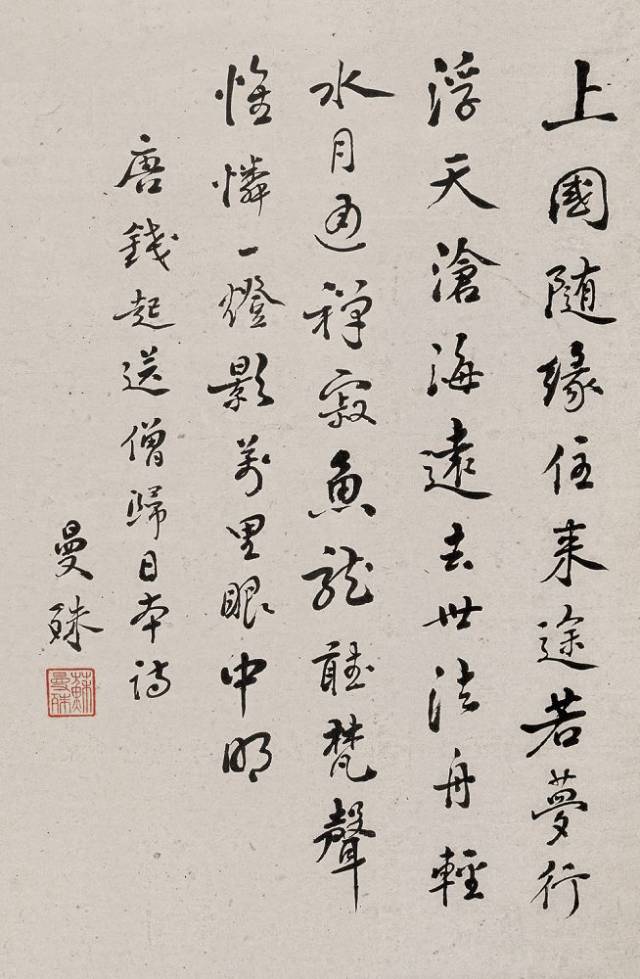 上國随緣住来途若夢行
浮天滄海遠去世法舟輕
水月通禪寂魚龍聽梵聲
惟憐一燈影萬里眼中明
唐錢起送僧歸日本詩
曼殊
蘇曼殊